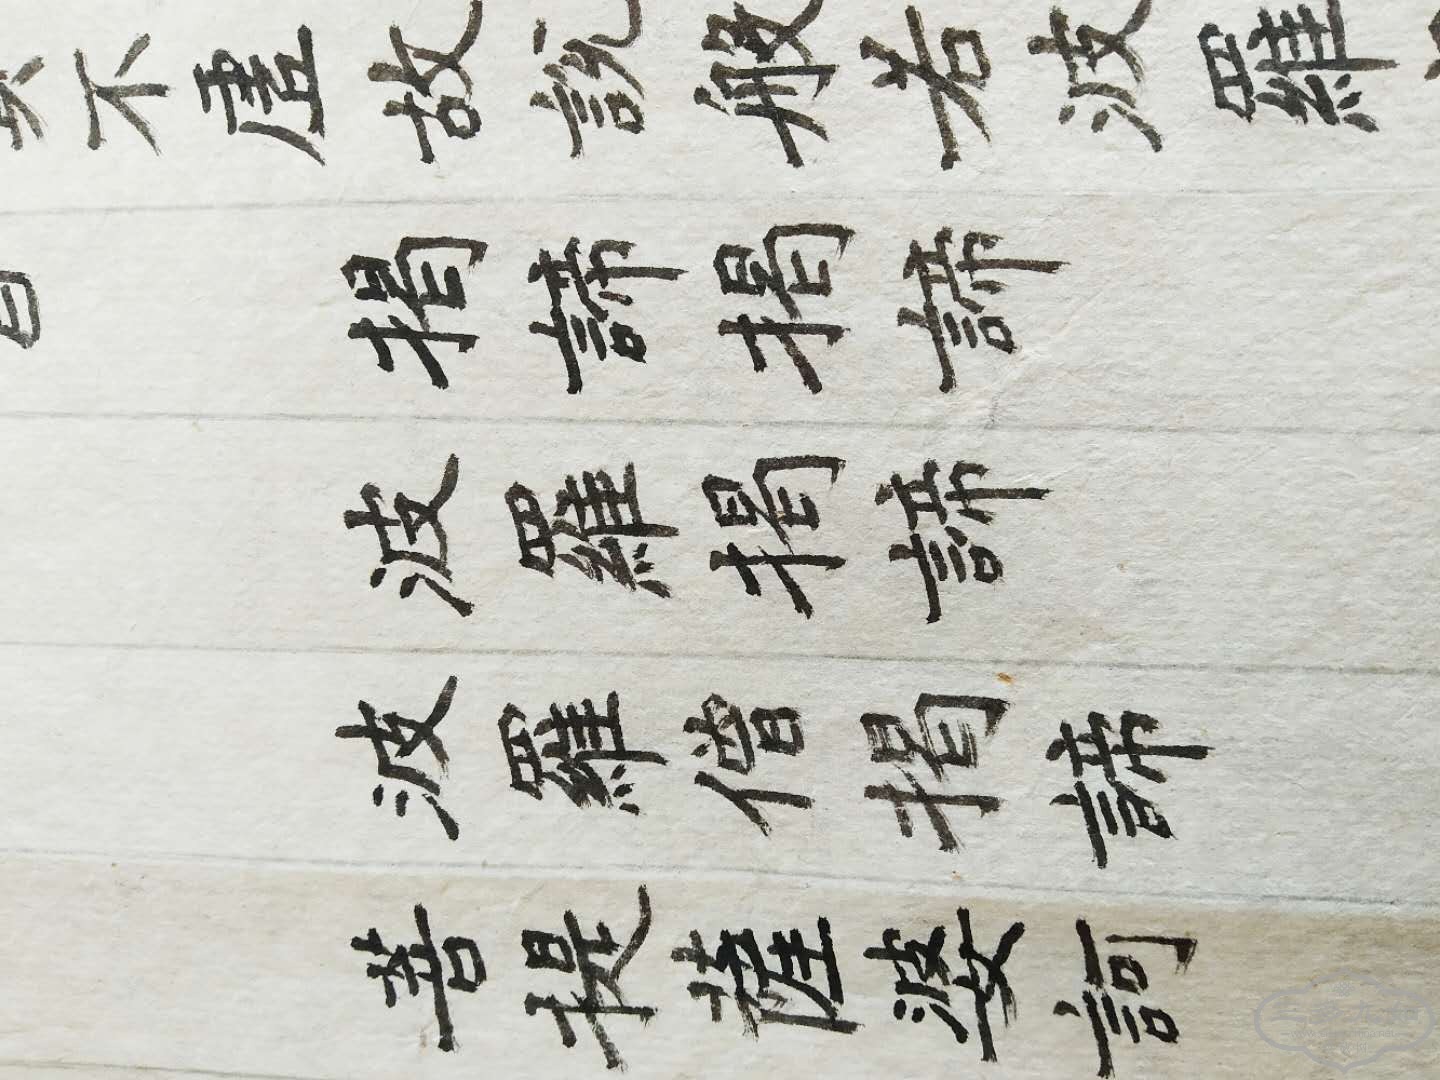 不虛故說般若波羅
曰 揭諦揭諦
波羅揭諦
波羅僧揭諦
菩提薩婆訶